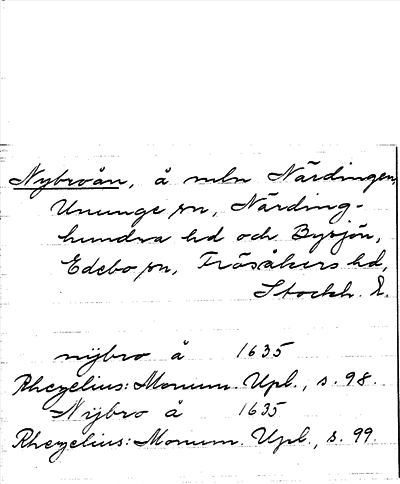 Nybroån, å mln Närdingen,
Ununge sn, Närding-
hundra hd och Bysjön,
Edebo sn, Frösåkers hd,
Stockh. l.
nijbro å 1635
Rhezelius: Monum. Upl., s. 98.
Nijbro å 1635
Rhezelius: Monum. Upl., s. 99.